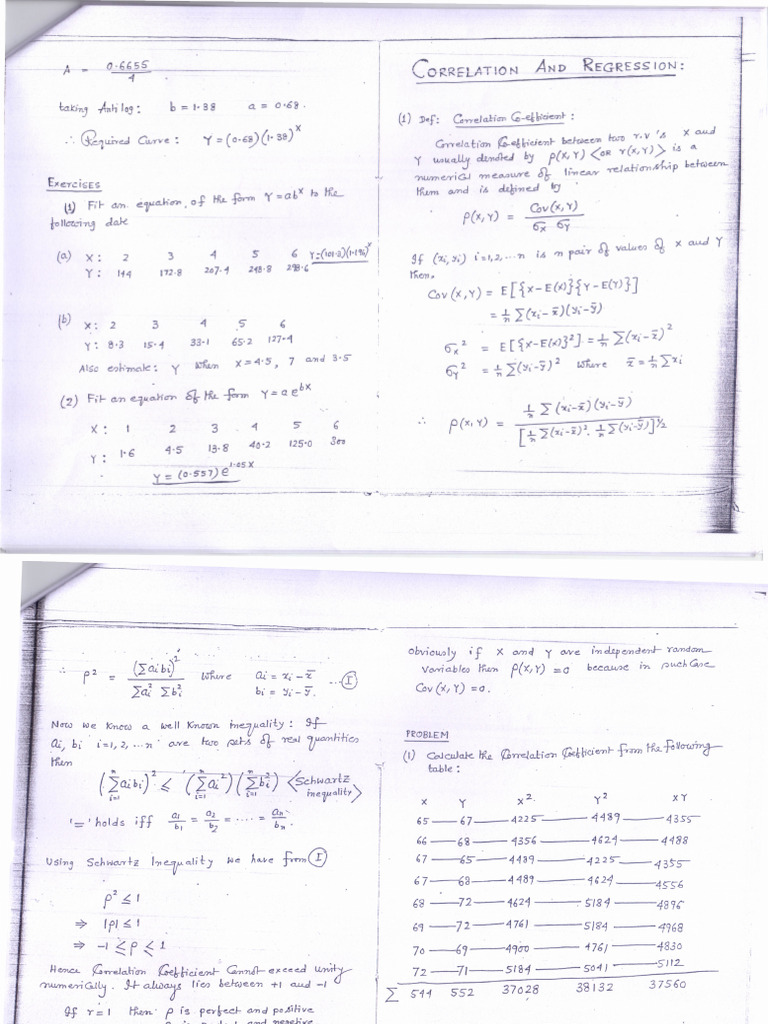 A = 0.6655 / 4
taking Antilog: b = 1.38 a = 0.68.
∴ Required Curve: Y = (0.68)(1.38)^X
Exercises
(1) Fit an equation of the form Y = ab^X to the
following date
(a) X: 2 3 4 5 6 Y=(101.3)(1.196)^X
Y: 144 172.8 207.4 248.8 298.6
(b) X: 2 3 4 5 6
Y: 8.3 15.4 33.1 65.2 127.4
Also estimate: Y when X = 4.5, 7 and 3.5
(2) Fit an equation of the form Y = a e^bX
X: 1 2 3 4 5 6
Y: 1.6 4.5 13.8 40.2 125.0 300
Y = (0.557) e^1.05X
CORRELATION AND REGRESSION:
(1) Def: Correlation Co-efficient:
Correlation Coefficient between two r.v's X and
Y usually denoted by ρ(X,Y) <OR r(X,Y)> is a
numerical measure of linear relationship between
them and is defined by
ρ(X,Y) = Cov(X,Y) / σX σY
If (xi,yi) i=1,2,...n is n pair of values of X and Y
then,
Cov(X,Y) = E[{X-E(X)}{Y-E(Y)}]
= 1/n Σ(xi-x̄)(yi-ȳ)
σX² = E[{X-E(X)}²] = 1/n Σ(xi-x̄)²
σY² = 1/n Σ(yi-ȳ)² where x̄ = 1/n Σxi
∴ ρ(X,Y) = 1/n Σ(xi-x̄)(yi-ȳ) / [1/n Σ(xi-x̄)². 1/n Σ(yi-ȳ)]^1/2
∴ ρ² = (Σaibi)² / Σai² Σbi² where ai = xi - x̄
bi = yi - ȳ. ... (I)
Now we know a well known inequality: If
ai, bi i=1,2,...n are two sets of real quantities
then
(Σaibi)² ≤ (Σai²)(Σbi²) <Schwartz
inequality>
'=' holds iff a1/b1 = a2/b2 = .... = an/bn.
Using Schwartz Inequality we have from (I)
ρ² ≤ 1
⇒ |ρ| ≤ 1
⇒ -1 ≤ ρ ≤ 1
Hence Correlation Coefficient Cannot exceed unity
numerically. It always lies between +1 and -1
If r = 1 then ρ is perfect and positive
and negative
Obviously if X and Y are independent random
Variables then ρ(X,Y) = 0 because in such Case
Cov(X,Y) = 0.
PROBLEM
(1) Calculate the Correlation Coefficient from the following
table:
X Y X² Y² XY
65 67 4225 4489 4355
66 68 4356 4624 4488
67 65 4489 4225 4355
67 68 4489 4624 4556
68 72 4624 5184 4896
69 72 4761 5184 4968
70 69 4900 4761 4830
72 71 5184 5041 5112
Σ 544 552 37028 38132 37560